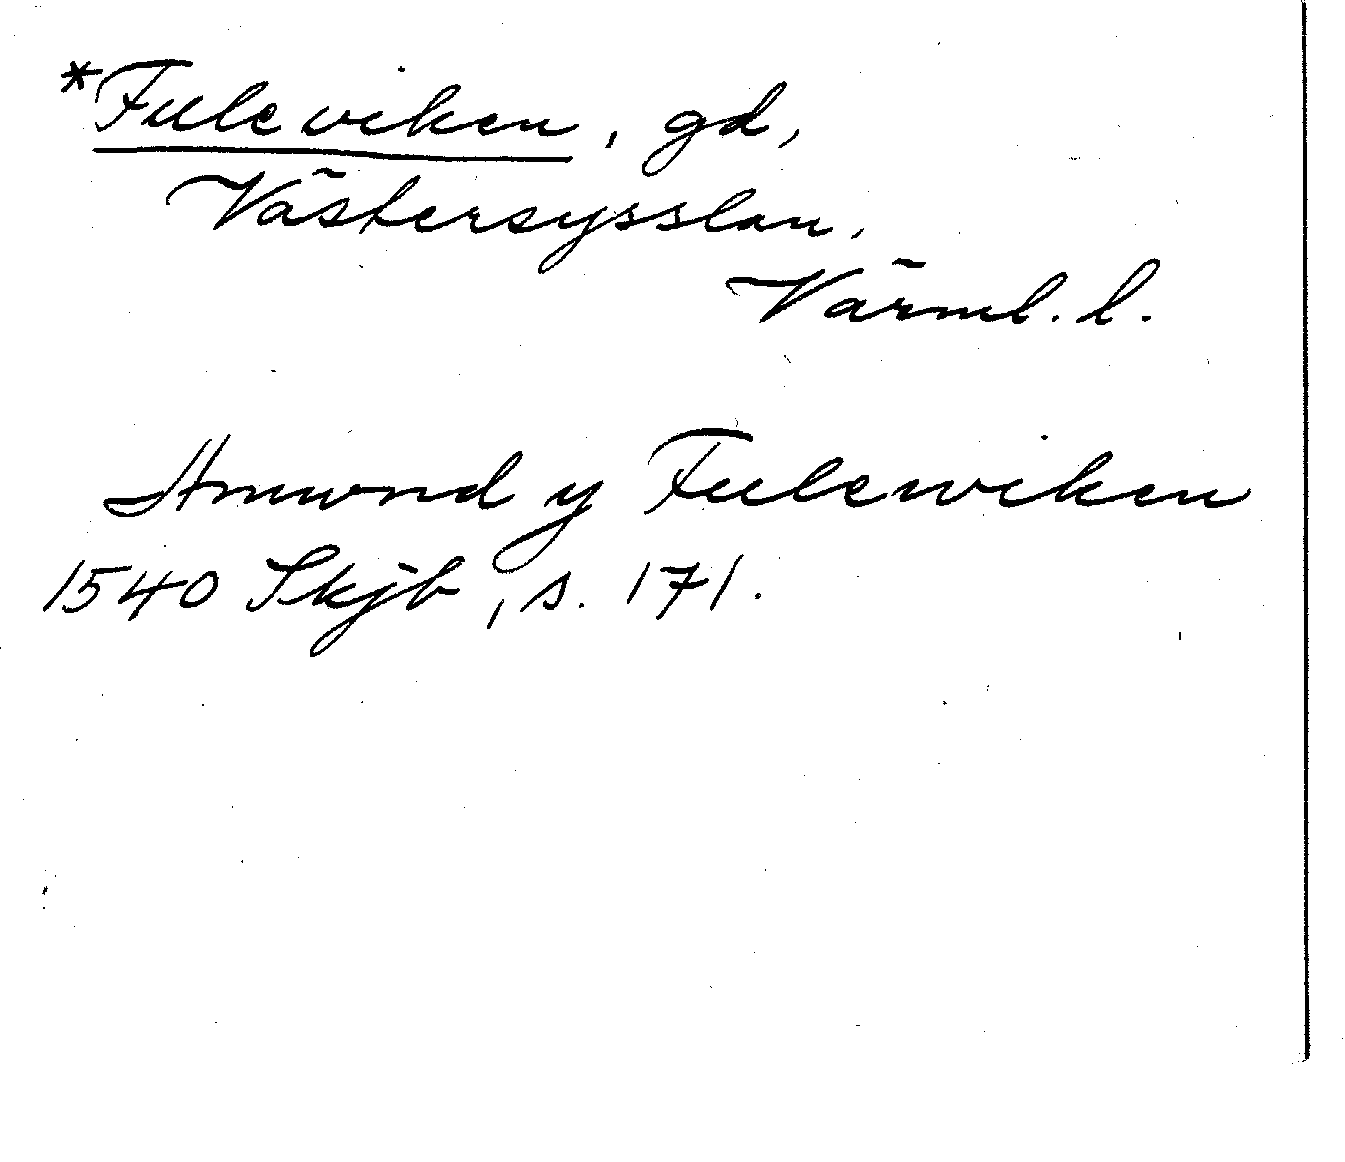 *Fuleviken, gd,
Västersysslan,
Värml. l.
Amwnd y Fulewiken
1540 Skjb, s. 171.